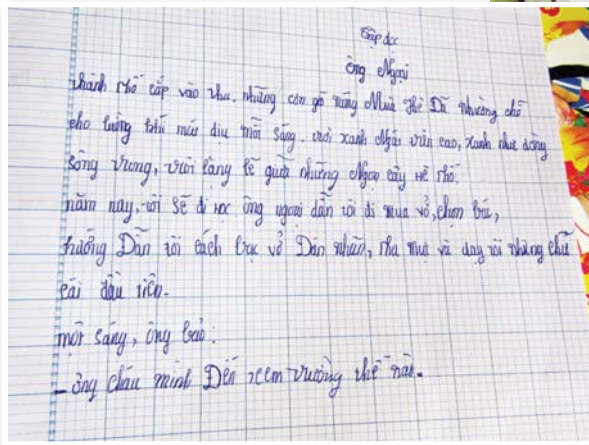 Tập đọc
Ông Ngoại
thành phố cấp vào thu. những cơn gó nóng Mùa hè Dã nhường chỗ
cho luồng khí mác dịu mỗi sáng. trời xanh ngắt trên cao, xanh như dòng
sông trong, trôi lặng lẽ giữa những Ngọn cây Hè phố.
năm nay, tôi sẽ đi học ông ngoại dẫn tôi đi mua vở, chọn bút,
hướng Dẫn tôi cách bọc vở Dán nhãn, pha mực và dạy tôi những chữ
cái đầu tiên.
một sáng, ông bảo:
- ông cháu mình Đến xem trường thế nào.